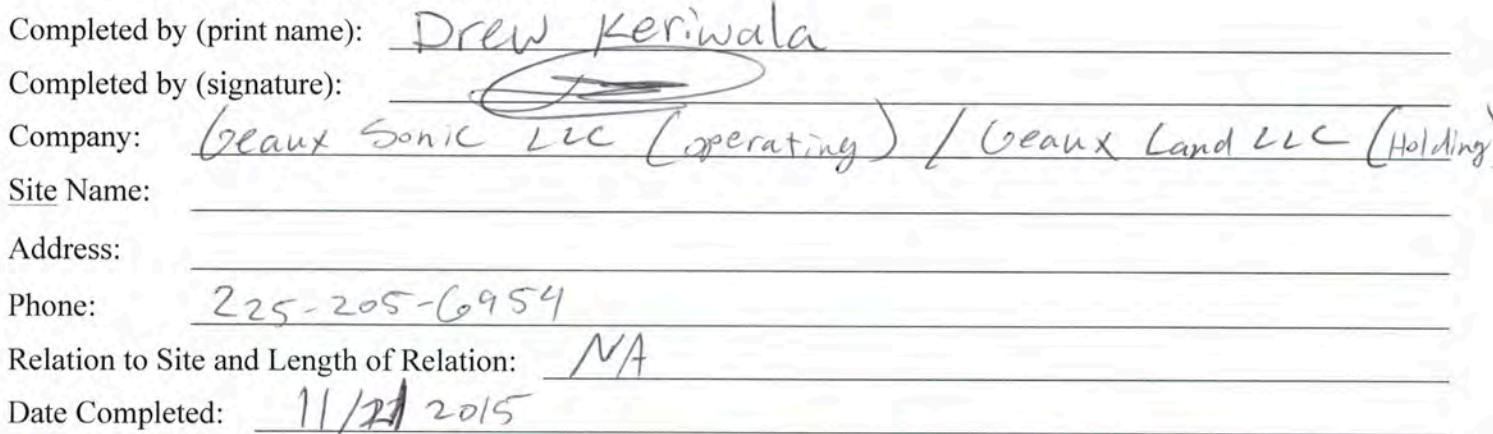 Completed by (print name): Drew Keriwala
Completed by (signature):
Company: Geaux Sonic LLC (operating) / Geaux Land LLC (Holding)
Site Name:
Address:
Phone: 225-205-6954
Relation to Site and Length of Relation: NA
Date Completed: 11/ 2015